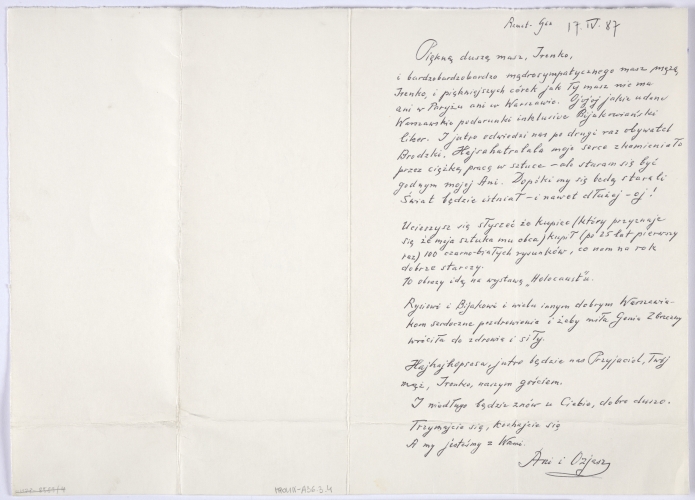 Ramat-Gan 17.IV.87
Piękną duszą masz, Irenko,
i bardzobardzobardzo mądrosympatycznego masz męża
Irenko, i piękniejszych córek jak Ty masz nie ma
ani w Paryżu ani w Warszawie. Ojojoj jakie udane
Warszawskie podarunki inklusive Bijakowański
likor. I jutro odwiedzi nas po drugi raz obywatel
Brodzki, moje serce zkamieniało
przez ciężką pracę w sztuce – ale staram się być
godnym mojej Ani. Dopóki my się będą starali
Świat będzie istniał – i nawet dłużej – oj!
Ucieszysz się słyszeć że kupiec (który przyznaje
się że moja sztuka mu obca) kupił (po 25 lat pierwszy
raz) 100 czarno-białych rysunków, co nam na rok
dobrze starczy.
10 obrazy idą na wystawę „Holocaust"u.
Rysiowi i Bijakowi i wielu innym dobrym Warszawia-
kom serdeczne pozdrowienia i żeby miła Genia Zbrzeczny
wróciła do zdrowia i siły.
jutro będzie nas Przyjaciel, Twój
mąż, Irenko, naszym gościem.
I niedługo będzie znów u Ciebie, dobra duszo.
Trzymajcie się, kochajcie się
A my jesteśmy z Wami.
Ani i Ozjasz